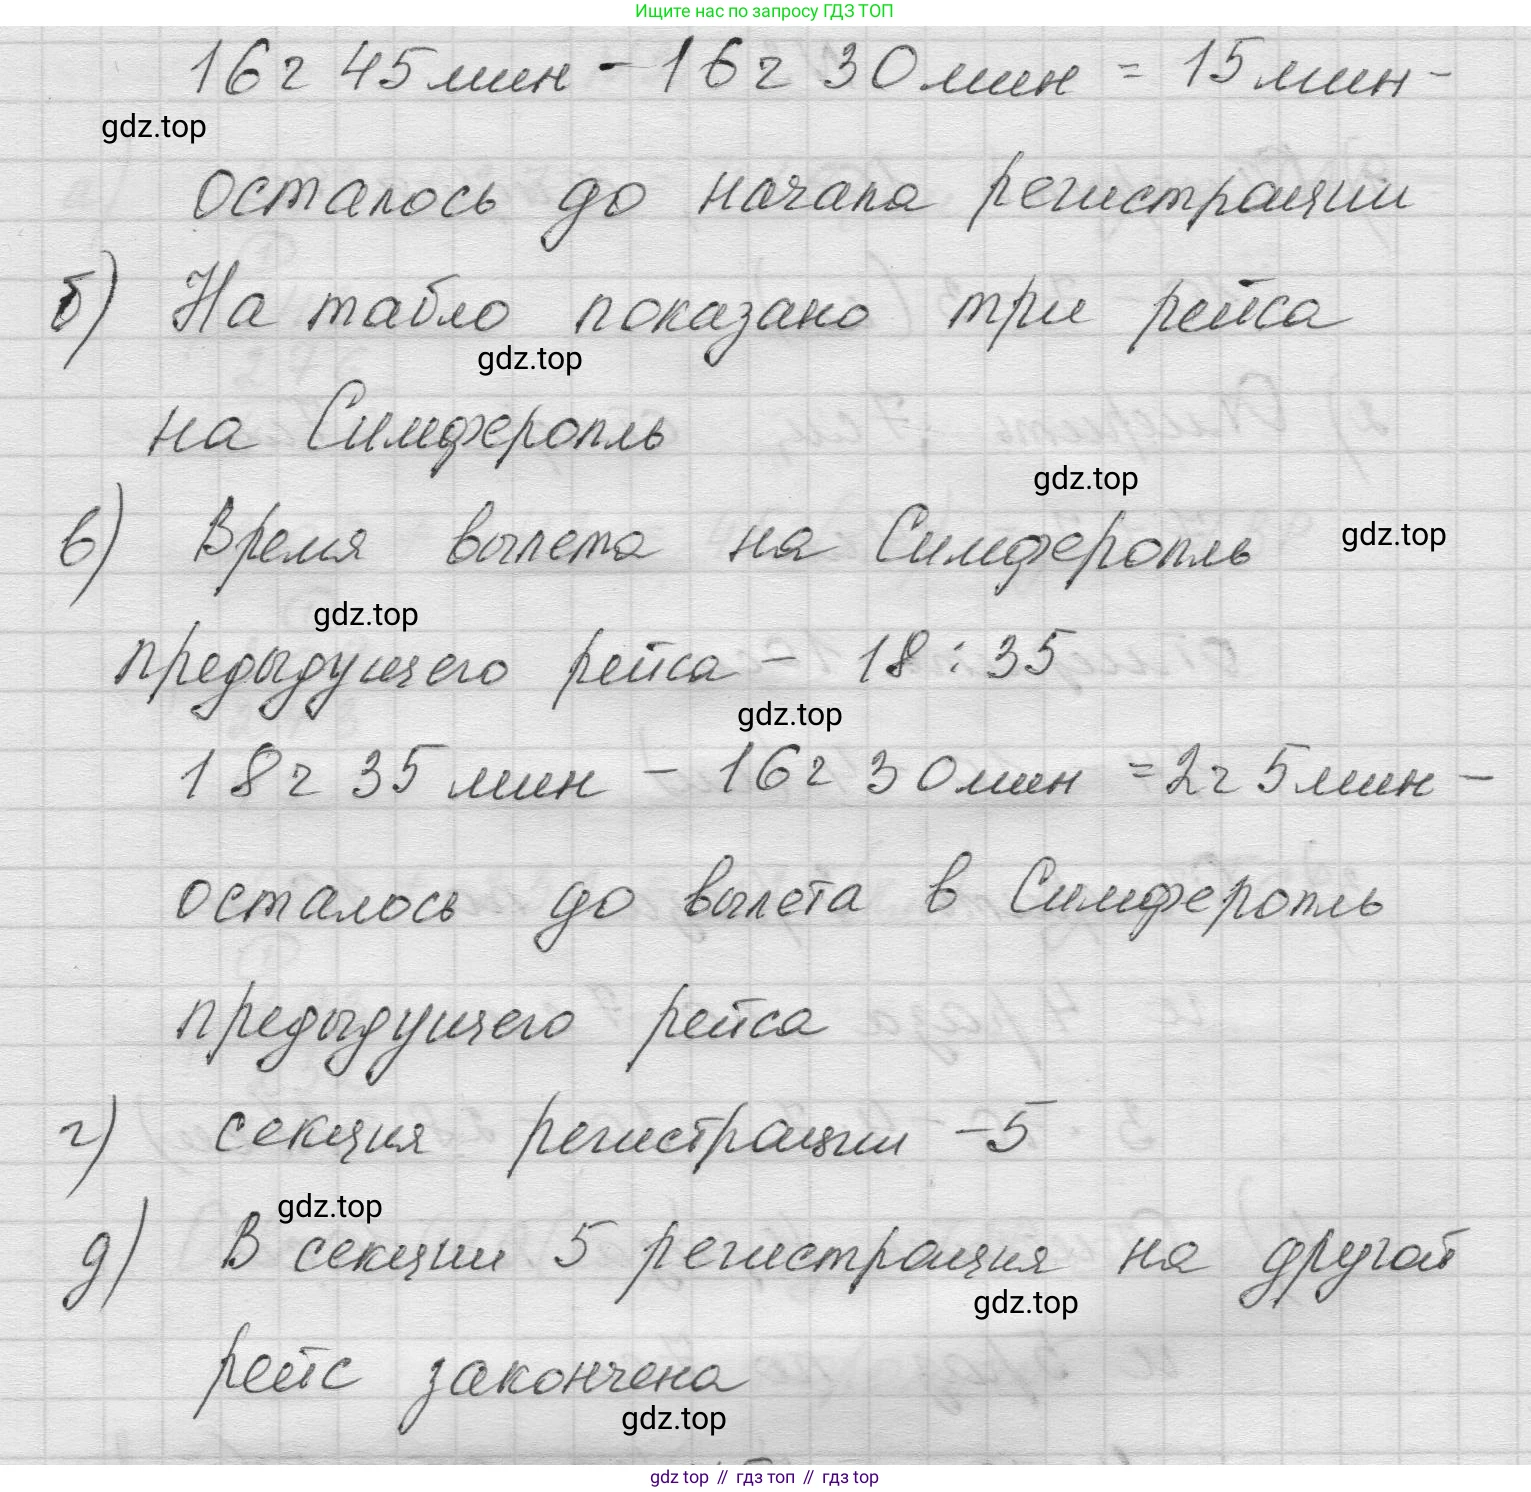 Ищите нас по запросу ГДЗ ТОП
16 ч 45 мин - 16 ч 30 мин = 15 мин -
gdz.top
осталось до начала регистрации
б) На табло показано три рейса
gdz.top
на Симферополь
gdz.top
в) Время вылета на Симферополь
gdz.top
gdz.top
предыдущего рейса - 18:35
gdz.top
18 ч 35 мин - 16 ч 30 мин = 2 ч 5 мин -
осталось до вылета в Симферополь
предыдущего рейса
г) секция регистрации - 5
gdz.top
д) В секции 5 регистрация на другой
gdz.top
рейс закончена
gdz.top
gdz top // гдз топ // гдз top